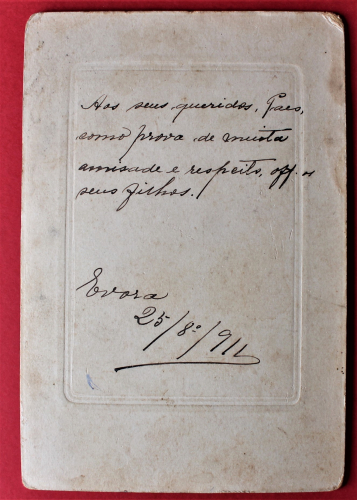 Aos seus queridos, Paes,
como prova de muita
amisade e respeito, off. os
seus filhos.
Evora
25/8º/911